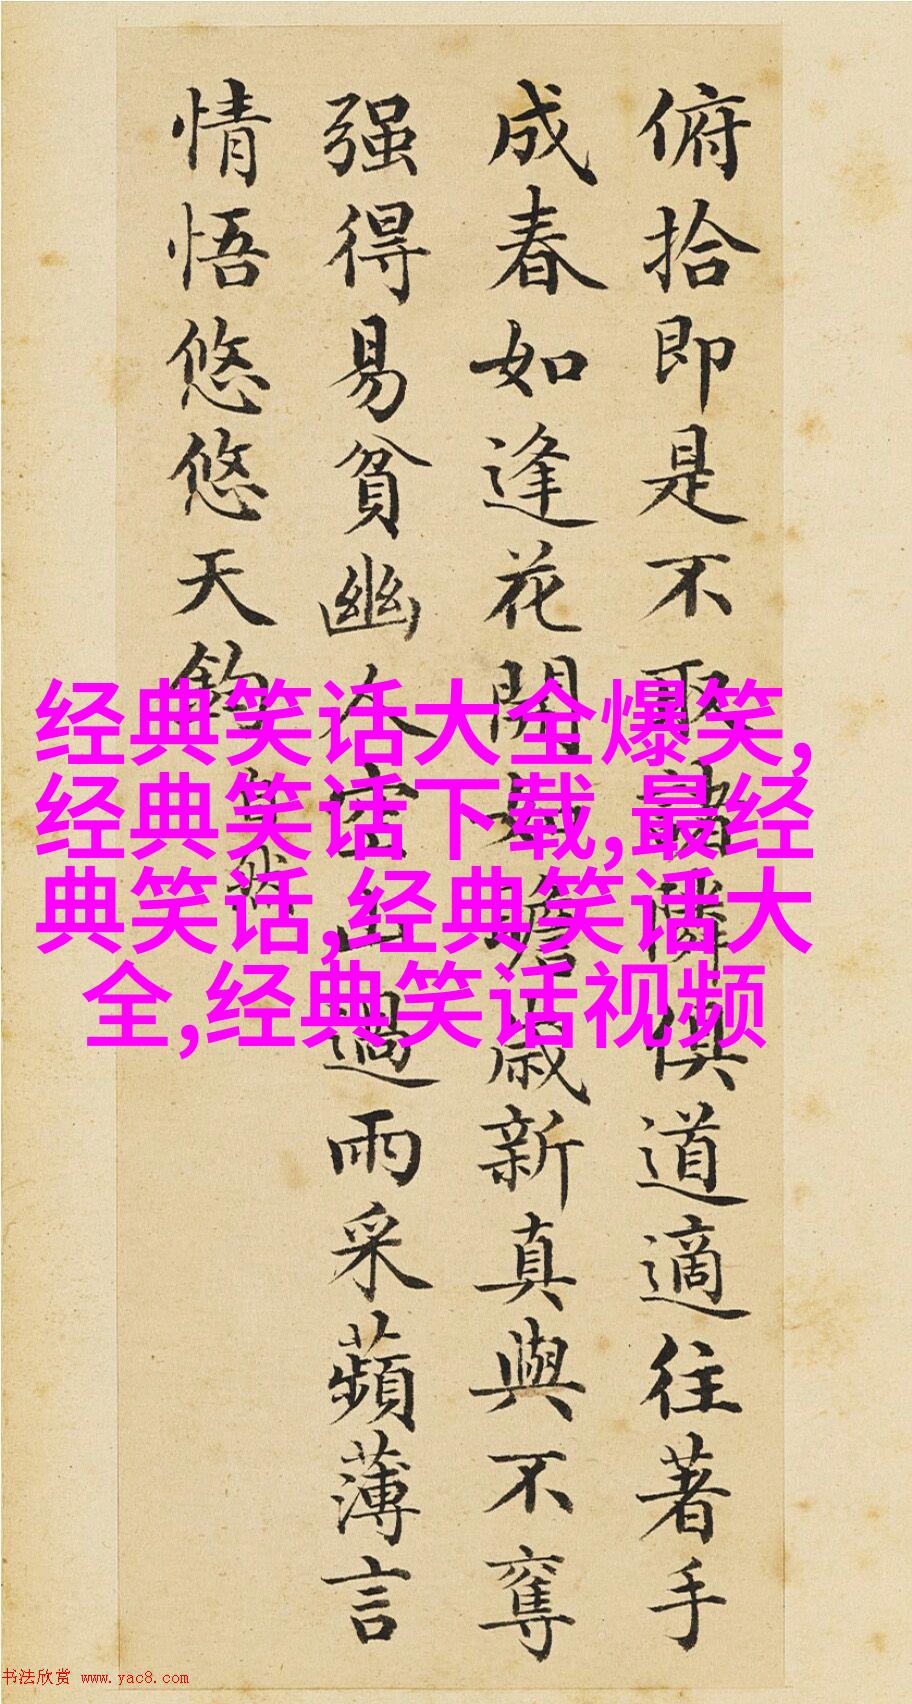 俯拾即是不取諸隣俱道適往著手
成春如逢花開如瞻歲新真與不奪
强得易貧幽人空山過雨采蘋薄言
情悟悠悠天鈞
自然
经典笑话大全爆笑,
经典笑话下载,最经
典笑话,经典笑话大
全,经典笑话视频
书法欣赏 www.yac8.com